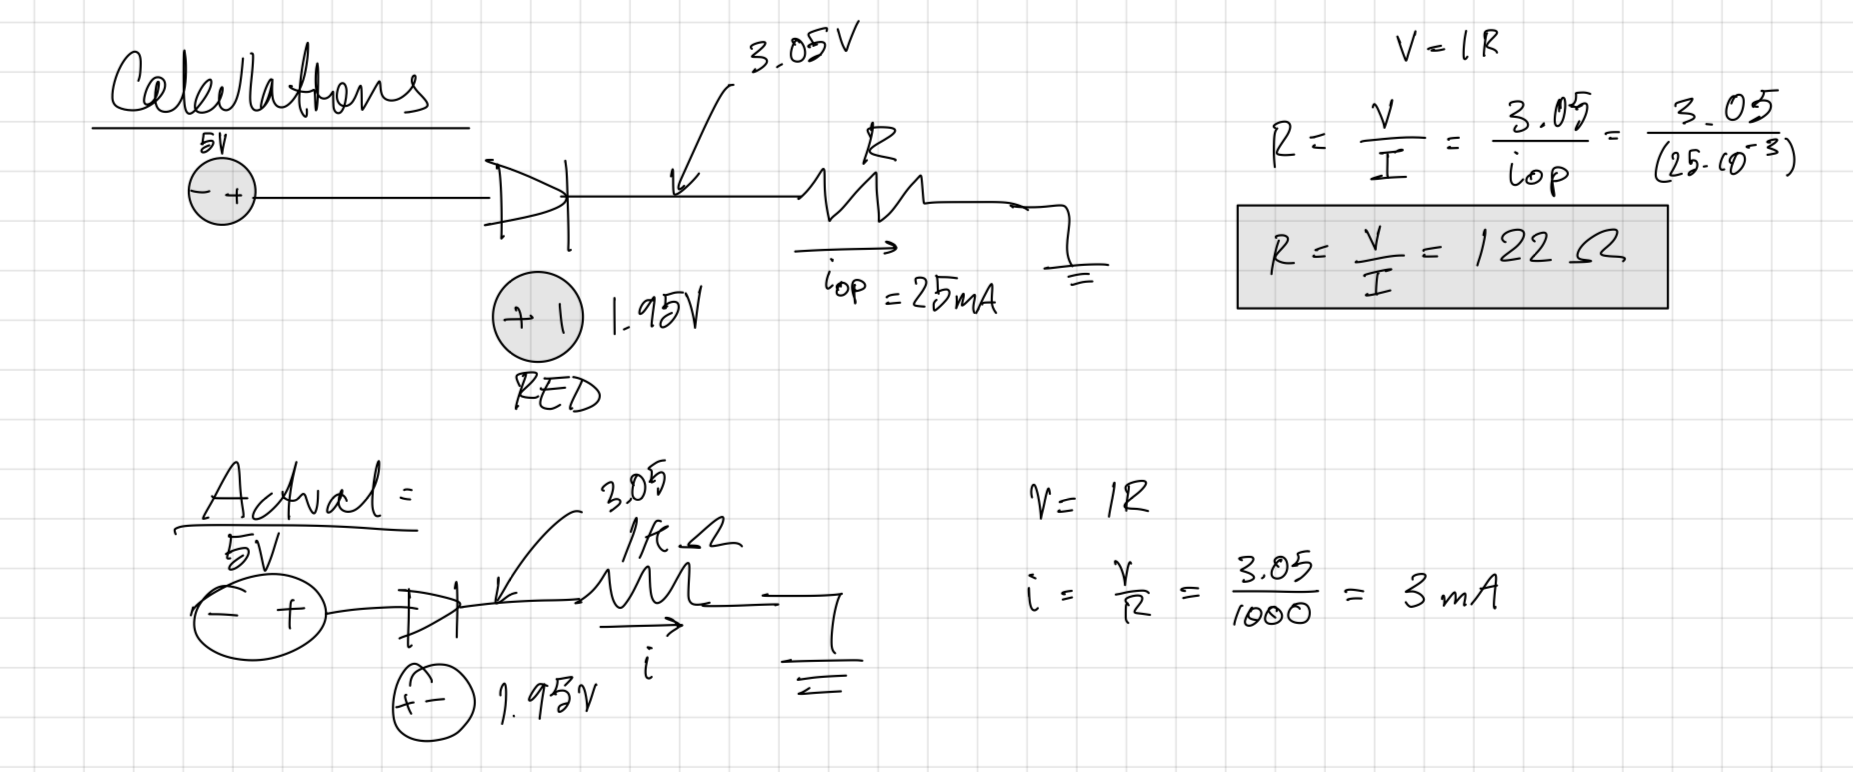 Calculations
5V
- +
3.05V
R
iop = 25mA
+ | 1.95V
RED
V = IR
R = V/I = 3.05/iop = 3.05/(25·10⁻³)
R = V/I = 122 Ω
Actual =
5V
- +
3.05
1K Ω
i
+ - 1.95V
V = IR
i = V/R = 3.05/1000 = 3 mA